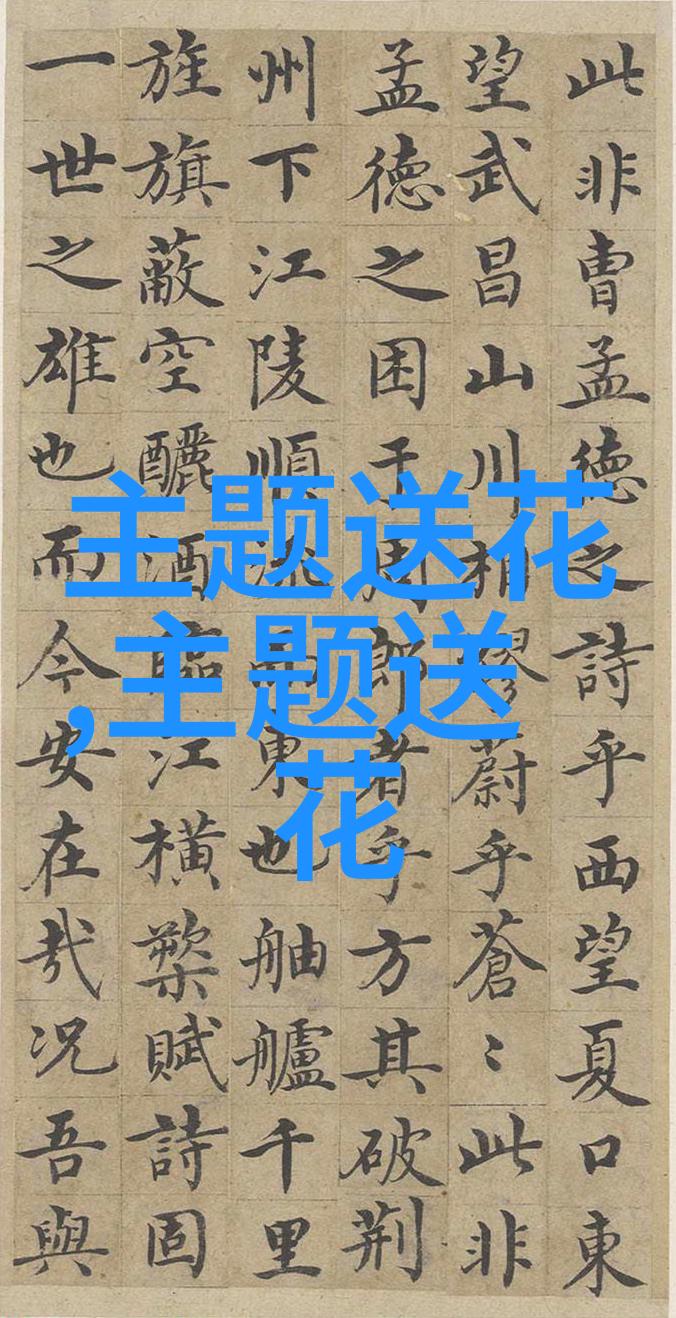 此非曹孟德之詩乎西望夏口東
望武昌山川相繆蔚乎蒼〻此非
孟德之困于周郎者乎方其破荊
州下江陵順流而東也舳艫千里
旌旗蔽空釃酒臨江橫槊賦詩固
一世之雄也而今安在哉况吾與
主题送花
,主题送
花